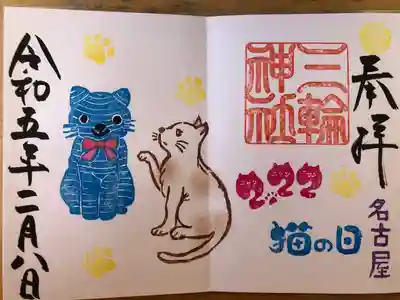 奉拝
名古屋
三輪神社
2.22
猫の日
令和五年二月八日